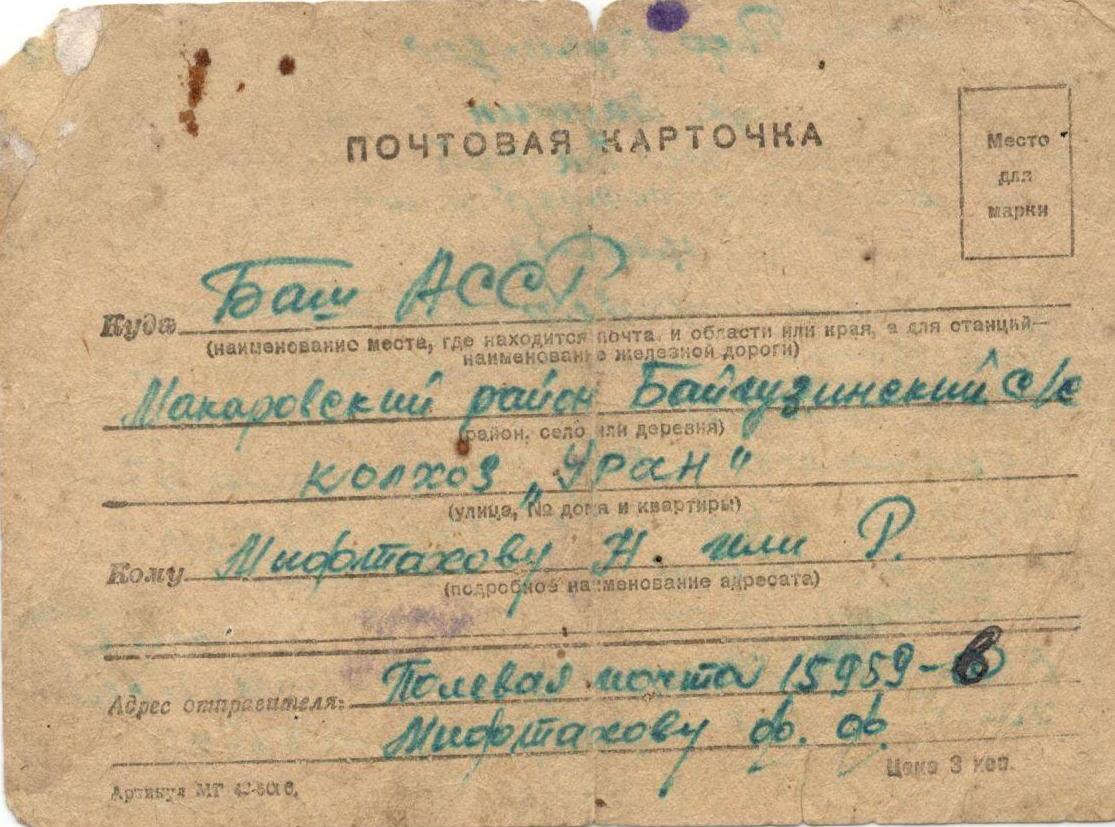 ПОЧТОВАЯ КАРТОЧКА
Место
для
марки
Куда Баш АССР
(наименование места, где находится почта, и области или края, а для станций—
наименование железной дороги)
Макаровский район Байгузинский с/с
(район, село или деревня)
колхоз „Уран"
(улица, № дома и квартиры)
Кому Мифтахову Н. или Р.
(подробное наименование адресата)
Адрес отправителя: Полевая почта 15959-в
Мифтахову Ф. Ф.
Цена 3 коп.
Артикул МГ